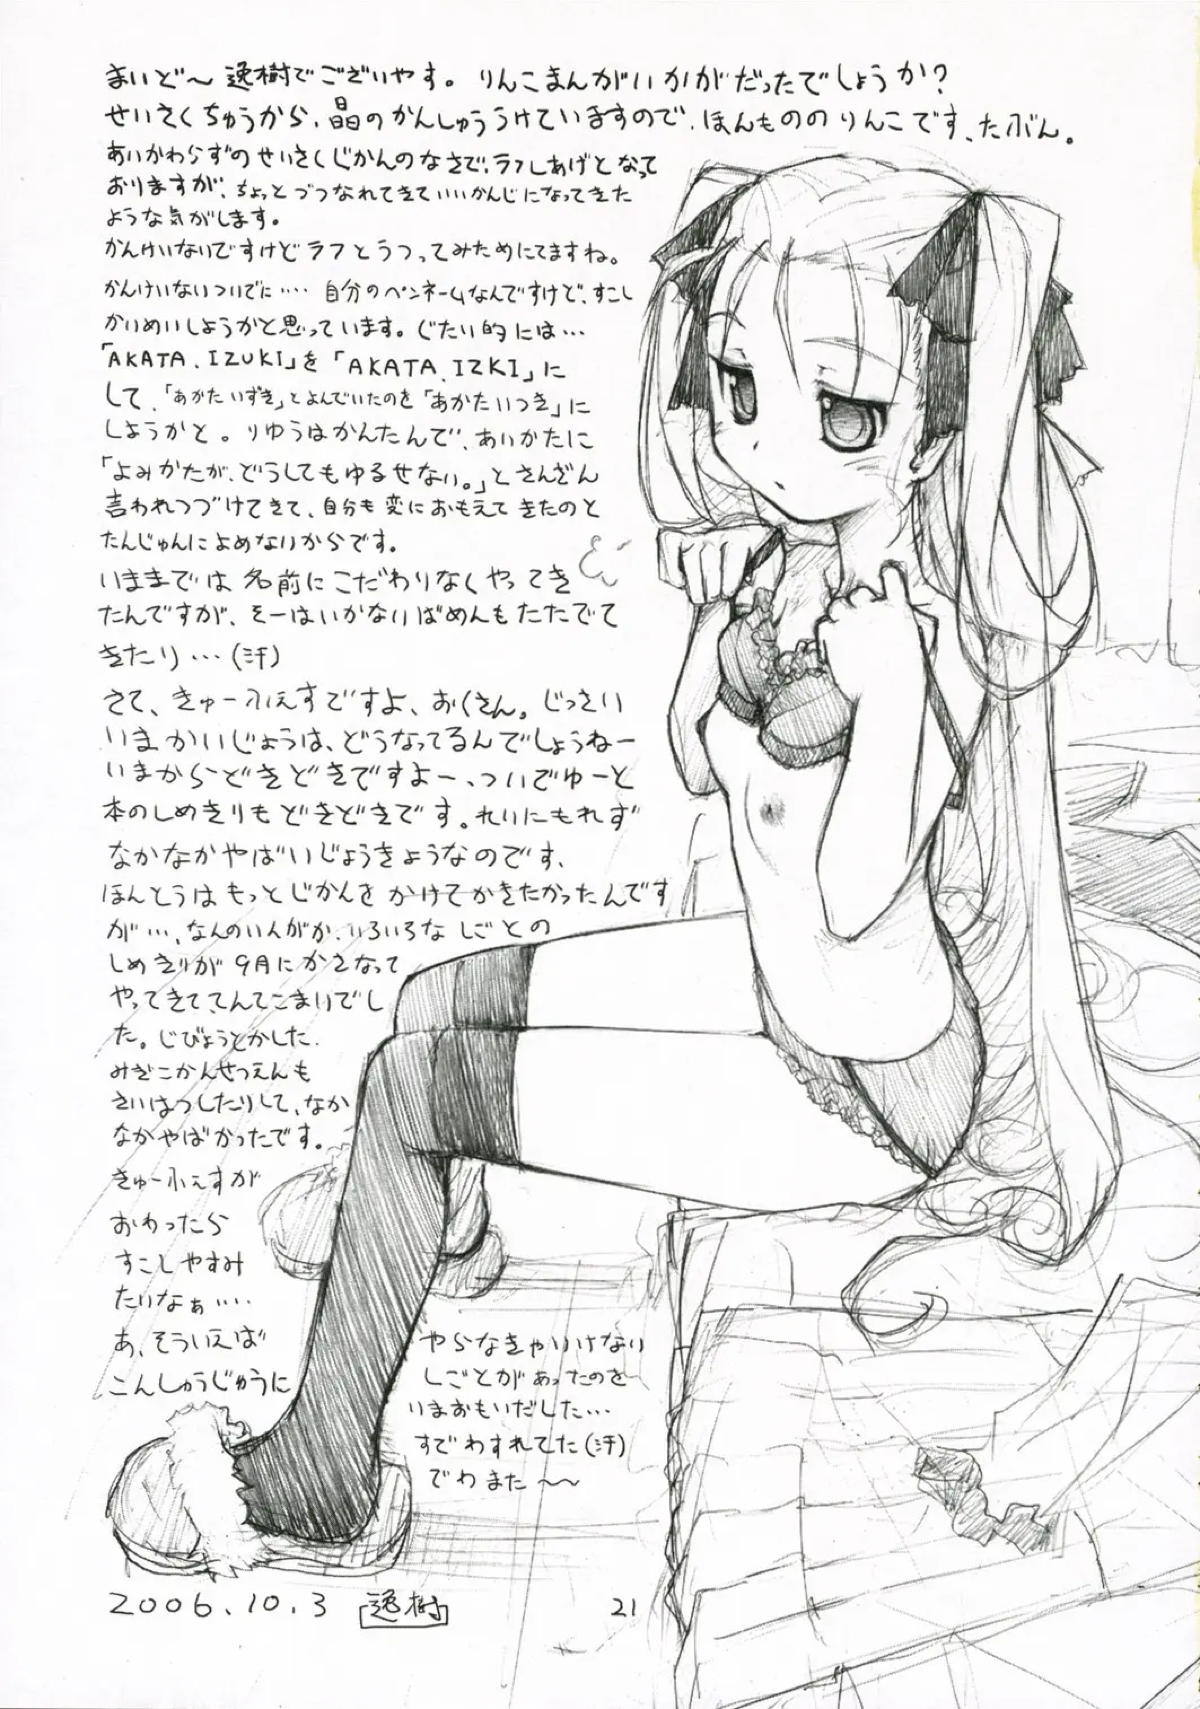 まいど～逸樹でございやす。りんこまんがいかがだったでしょうか？
せいさくちゅうから、晶のかんしゅううけていますので、ほんもののりんこです、たぶん。
あいかわらずのせいさくじかんのなさで、ラフしあげとなって
おりますが、ちょっとづつなれてきていいかんじになってきた
ような気がします。
かんけいないですけどラフとうつってみためにてますね。
かんけいないついでに‥‥自分のペンネームなんですけど、すこし
かいめいしようかと思っています。じたい的には…
「AKATA.IZUKI」を「AKATA.IZKI」に
して、「あかたいずき」とよんでいたのを「あかたいつき」に
しようかと。りゆうはかんたんで、あいかたに
「よみかたが、どうしてもゆるせない。」とさんざん
言われつづけてきて、自分も変におもえてきたのと
たんじゅんによめないからです。
いままでは名前にこだわりなくやってき
たんですが、そーはいかないばめんもたたでて
きたり…(汗)
さて、きゅーふぇすですよ、おくさん。じっさい
いまかいじょうは、どうなってるんでしょうねー
いまからどきどきですよー、ついでゅーと
本のしめきりもどきどきです。れいにもれず
なかなかやばいじょうきょうなのです、
ほんとうはもっとじかんをかけてかきたかったんです
が…、なんのいんがか、いろいろなしごとの
しめきりが9月にかさなって
やってきて、てんてこまいでし
た。じびょうとかした、
みぎこかんせつえんも
さいはつしたりして、なか
なかやばかったです。
きゅーふぇすが
おわったら
すこしやすみ
たいなぁ‥‥
あ、そういえば
こんしゅうじゅうに
やらなきゃいけない
しごとがあったのを
いまおもいだした…
すでわすれてた(汗)
でわまた～～
2006.10.3 逸樹
21